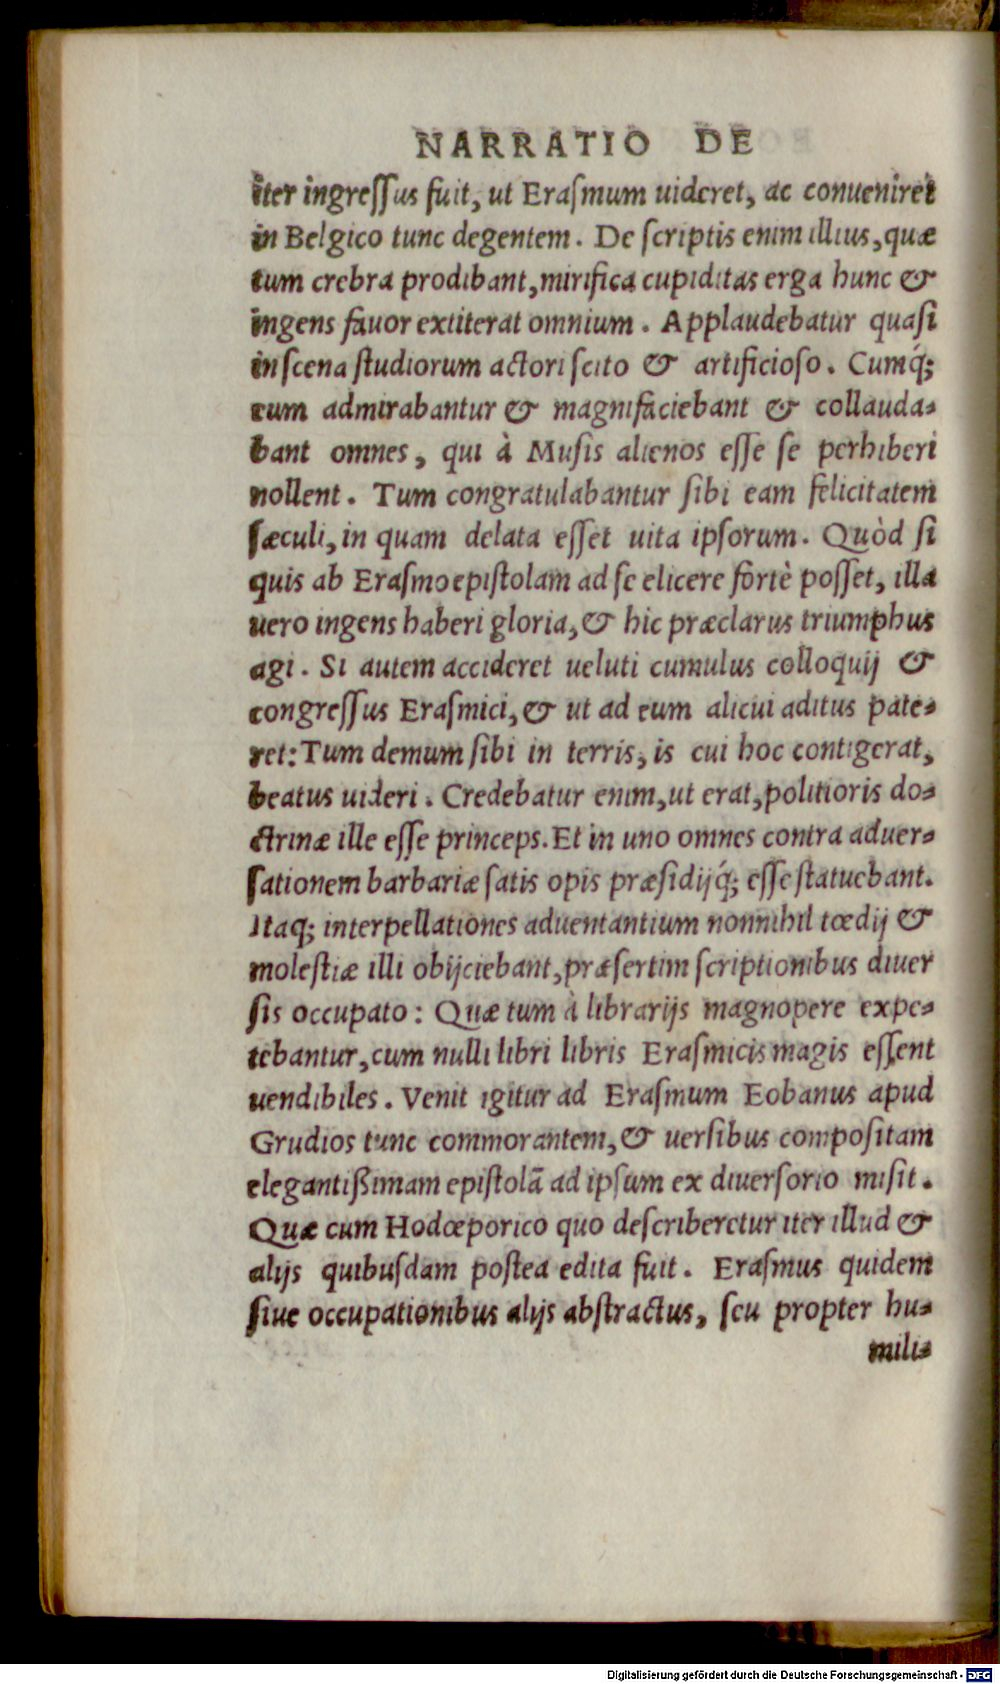 NARRATIO DE
iter ingreſſus fuit, ut Eraſmum uideret, ac conueniret
in Belgico tunc degentem. De ſcriptis enim illius, quæ
tum crebra prodibant, mirifica cupiditas erga hunc &
ingens fauor extiterat omnium. Applaudebatur quaſi
in ſcena ſtudiorum actori ſcito & artificioſo. Cumq́;
eum admirabantur & magnifaciebant & collauda⸗
bant omnes, qui à Muſis alienos eſſe ſe perhiberi
nollent. Tum congratulabantur ſibi eam felicitatem
ſæculi, in quam delata eſſet uita ipſorum. Quòd ſi
quis ab Eraſmo epiſtolam ad ſe elicere fortè poſſet, illa
uero ingens haberi gloria, & hic præclarus triumphus
agi. Si autem accideret ueluti cumulus colloquij &
congreſſus Eraſmici, & ut ad eum alicui aditus pate⸗
ret: Tum demum ſibi in terris, is cui hoc contigerat,
beatus uideri. Credebatur enim, ut erat, politioris do⸗
ctrinæ ille eſſe princeps. Et in uno omnes contra aduer⸗
ſationem barbariæ ſatis opis præſidijq́; eſſe ſtatuebant.
Itaq; interpellationes aduentantium nonnihil tœdij &
moleſtiæ illi obijciebant, præſertim ſcriptionibus diuer
ſis occupato: Quæ tum à librarijs magnopere expe⸗
tebantur, cum nulli libri libris Eraſmicis magis eſſent
uendibiles. Venit igitur ad Eraſmum Eobanus apud
Grudios tunc commorantem, & uerſibus compoſitam
elegantißimam epiſtolã ad ipſum ex diuerſorio miſit.
Quæ cum Hodœporico quo deſcriberetur iter illud &
alijs quibuſdam poſtea edita fuit. Eraſmus quidem
ſiue occupationibus alijs abſtractus, ſeu propter hu⸗
mili⸗
Digitalisierung gefördert durch die Deutsche Forschungsgemeinschaft - DFG